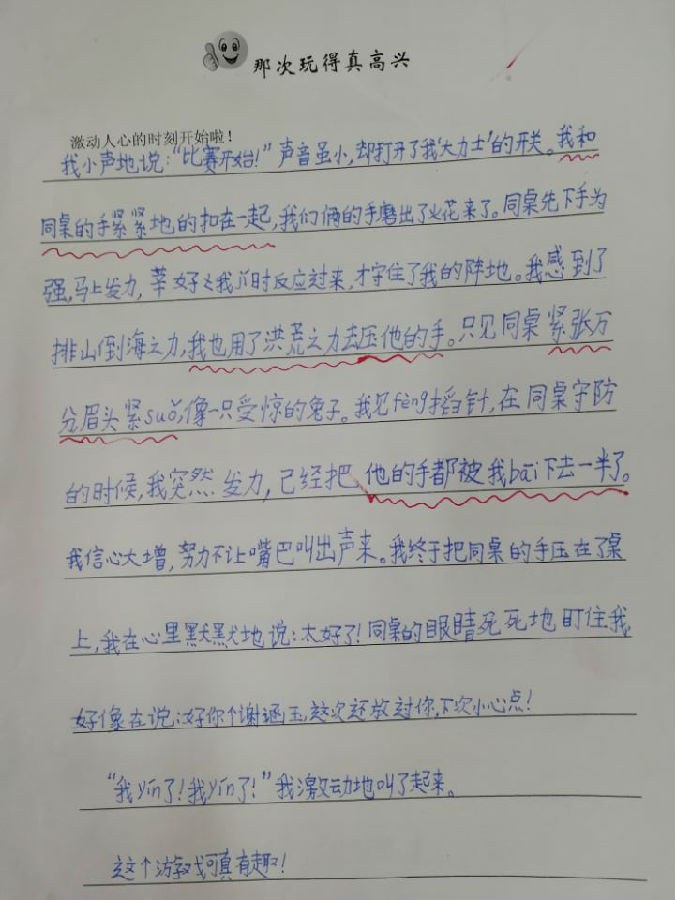 那次玩得真高兴
激动人心的时刻开始啦！
我小声地说："比赛开始！"声音虽小，却打开了我"大力士"的开关。我和
同桌的手紧紧地的扣在一起，我们俩的手磨出了火花来了。同桌先下手为
强，马上发力，幸好我及时反应过来，才守住了我的阵地。我感到了
排山倒海之力，我也用了洪荒之力去压他的手。只见同桌紧张万
分眉头紧suǒ，像一只受惊的兔子。我见fèng插针，在同桌守防
的时候，我突然发力，已经把他的手都被我bāi下去一半了。
我信心大增，努力不让嘴巴叫出声来。我终于把同桌的手压在了桌
上，我在心里默默地说：太好了！同桌的眼睛死死地盯住我，
好像在说：好你个谢涵玉，这次还放过你，下次小心点！
"我yín了！我yín了！"我激动地叫了起来。
这个游戏可真有趣！